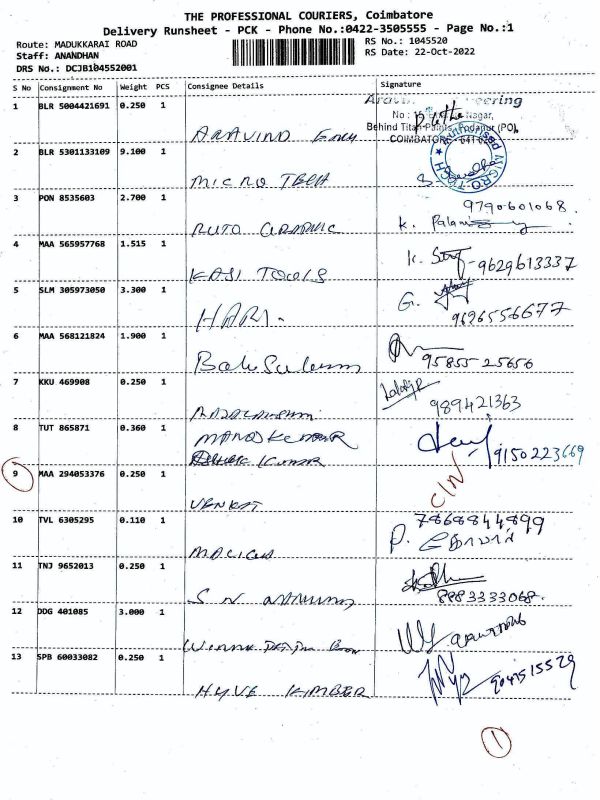 THE PROFESSIONAL COURIERS, Coimbatore
Delivery Runsheet - PCK - Phone No.:0422-3505555 - Page No.:1
Route: MADUKKARAI ROAD
RS No.: 1045520
Staff: ANANDHAN
RS Date: 22-Oct-2022
DRS No.: DCJB104552001
S No Consignment No Weight PCS Consignee Details Signature
1 BLR 5004421691 0.250 1
No : 
Nagar,
Behind Titan (PO),
COIMBATORE
ARAVIND Engg
2 BLR 5301133109 9.100 1
MICRO TECH
3 PON 8535603 2.700 1
9790601068.
AUTO GRAPHIC K.
4 MAA 565957768 1.515 1
K. 9629613337
KASI TOOLS
5 SLM 305973050 3.300 1
G.
9626556677
HARI.
6 MAA 568121824 1.900 1
95855 25656
7 KKU 469908 0.250 1
989421363
RAJALAKSHMI
8 TUT 865871 0.360 1
MANOJ KUMAR
9150223669
KUMAR
9 MAA 294053376 0.250 1
C/N
VENKAT
10 TVL 6305295 0.110 1
7868844899
P.
11 TNJ 9652013 0.250 1
8883333068.
S N
12 DDG 401085 3.000 1
13 SPB 60033082 0.250 1
9047515529
HYVE KIMBER
1